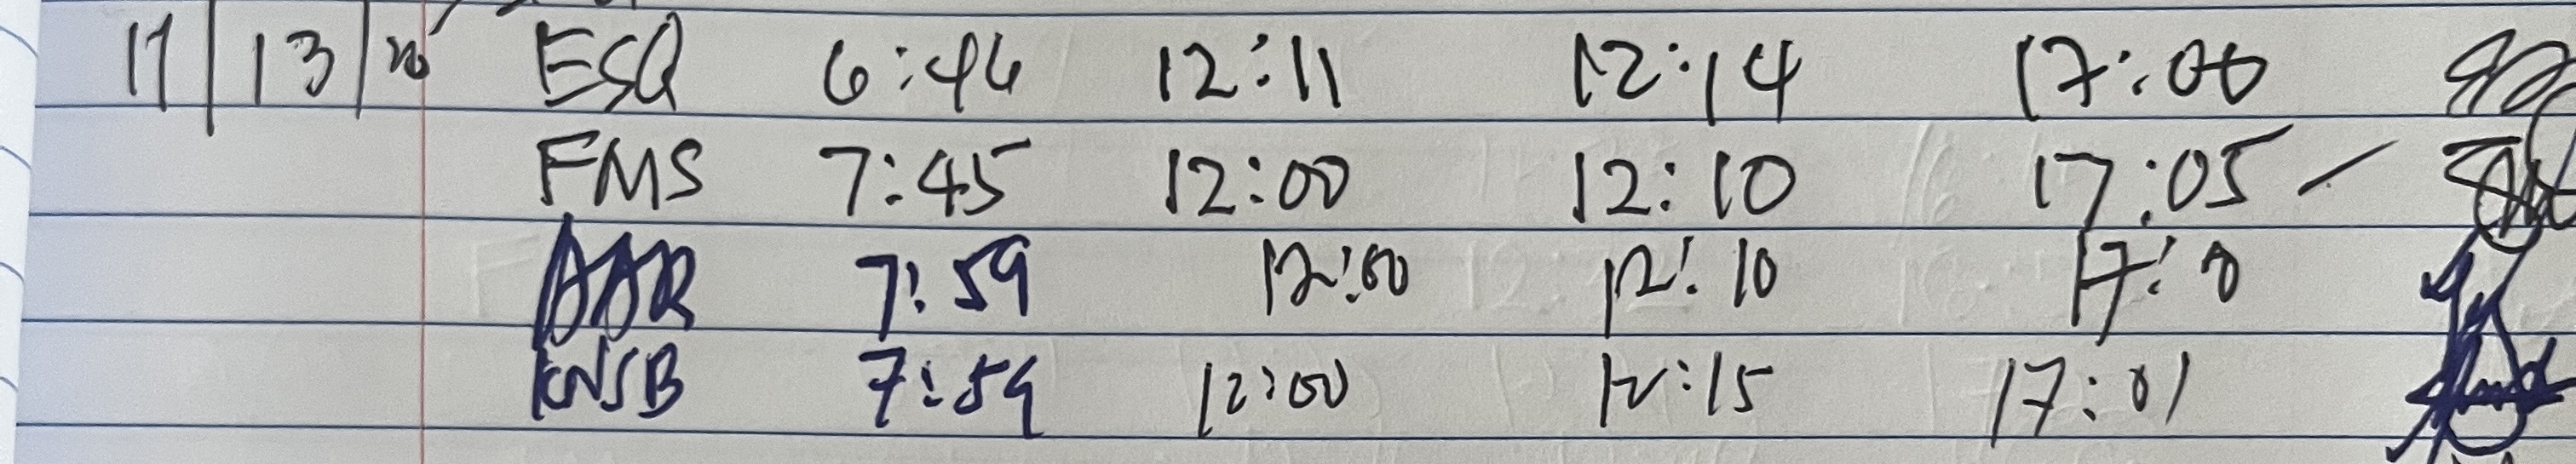 11/13/20 ESQ 6:46 12:11 12:14 17:00
FMS 7:45 12:00 12:10 17:05
AAR 7:59 12:00 12:10 17:0
KNSB 7:59 12:00 12:15 17:01